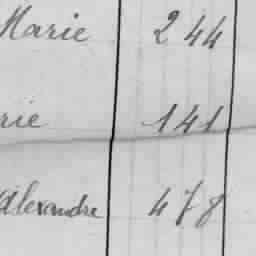 Marie 244
rie 141
Alexandre 478